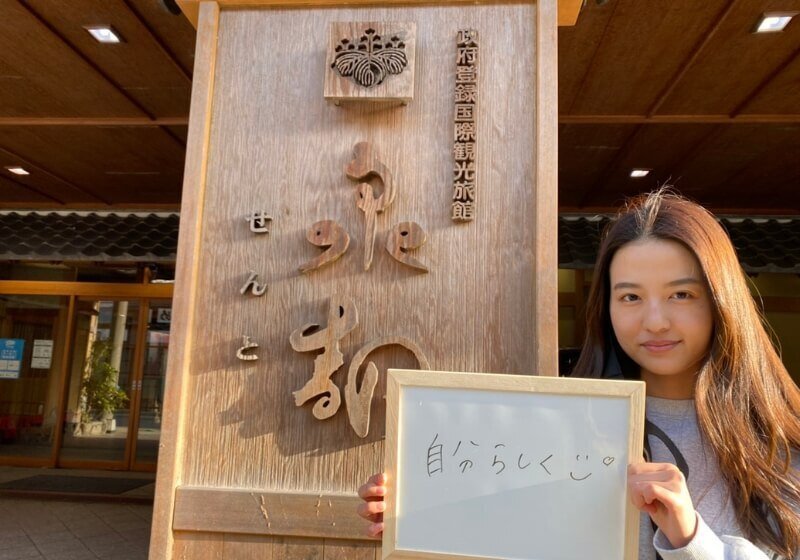 政府登録国際観光旅館
泉都
せんと
自分らしく